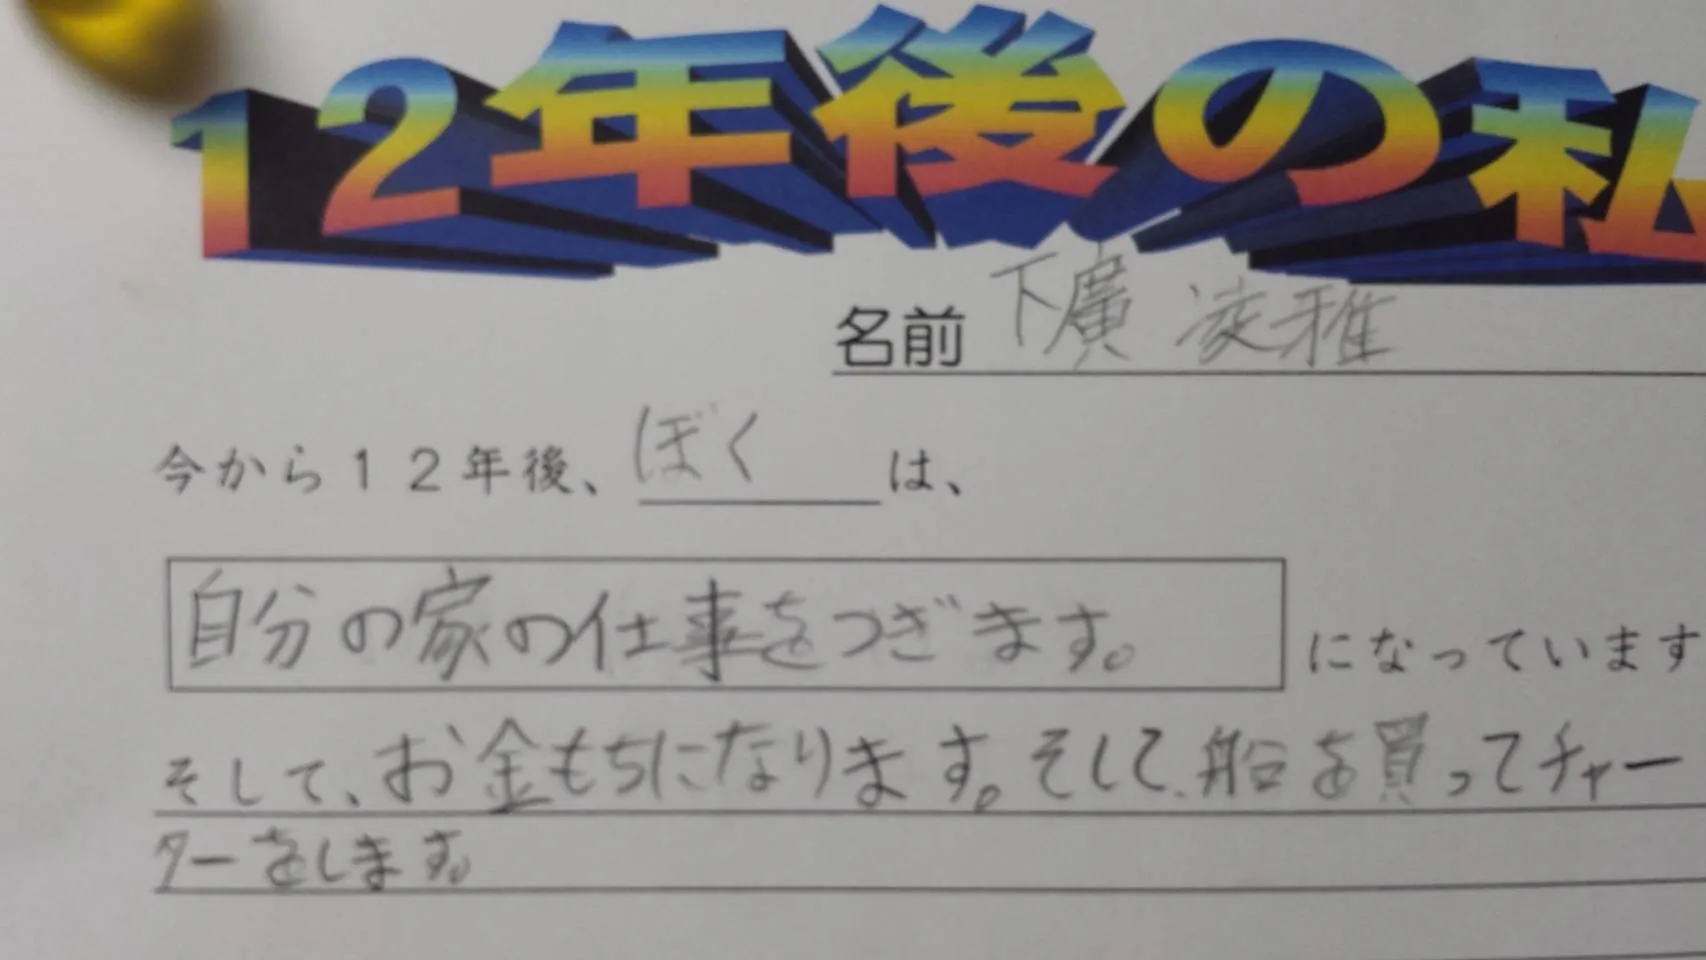 12年後の私
名前 下廣 凌雅
今から12年後、ぼくは、
自分の家の仕事をつぎます。になっています
そして、お金もちになります。そして、船を買ってチャー
ターをします。